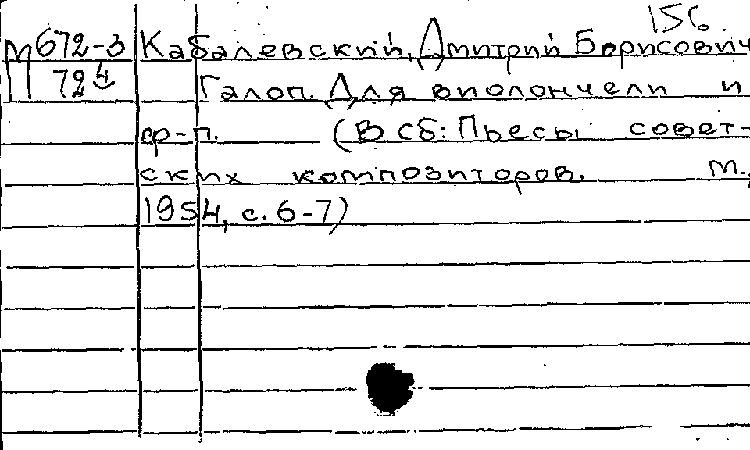 156
М672-3 Кабалевский, Дмитрий Борисович
П 724 Галоп. Для виолончели и
ф-п. (В сб: Пьесы совет-
ских композиторов. М.,
1954, с. 6-7)